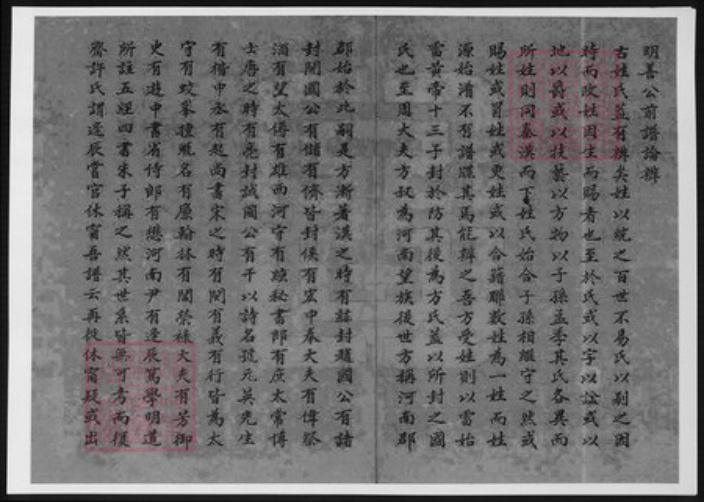 明善公前譜論辨
古姓氏蓋有辨矣姓以統之百世不易氏以別之因
時而改姓因生而賜者也至於氏或以字以諡或以
地以爵或以技藝以方物以子孫孟季其氏各異而
所姓則同秦漢而下姓氏始合子孫相繼守之然或
賜姓或冒姓或更姓或以合籍聯數姓為一姓而姓
源始淆不有譜牒其焉能辨之吾方受姓則以雷始
雷黃帝十三子封於防其後為方氏蓋以所封之國
氏也至周大夫方叔為河南望族後世方稱河南郡
郡始於此嗣是方漸著漢之時有紘封國公有諸
封關國公有儲有儕皆封侯有宏中奉大夫有偉祭
酒有望太傅有雄西河守有秘書郎有庶太常博
士唐之時有亮封誠國公有干以詩名號元英先生
有楷中丞有起尚書宋之時有閔有義有行皆為太
守有蛟擅名有原翰林有聞榮祿大夫有芳御
史有遊中書省侍郎有懋河南尹有逢辰篤學明道
所註五經四書朱子稱之然其世系皆無可考而復
齋許氏謂逢辰嘗官休甯吾譜云再從休甯疑或出